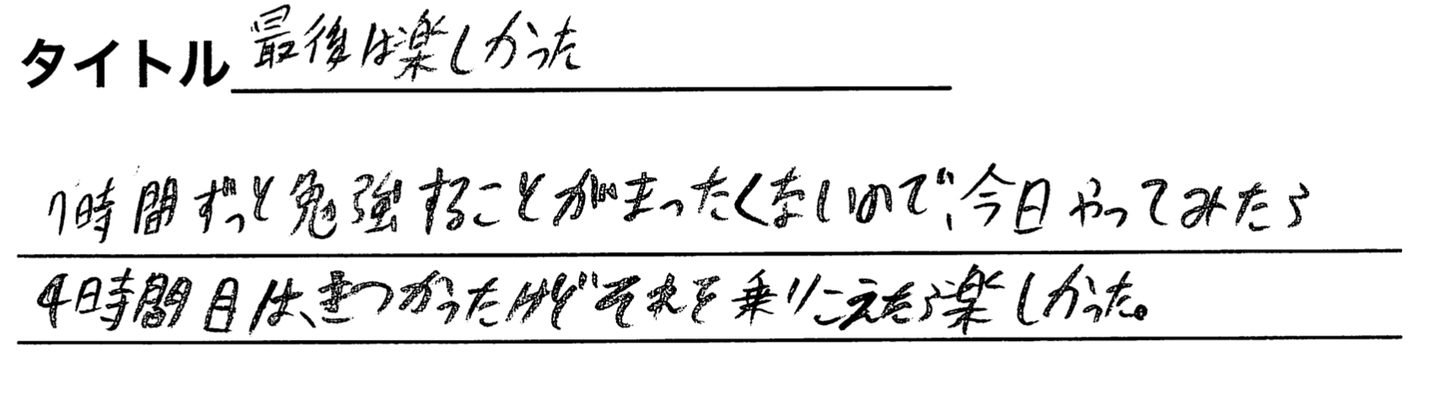 タイトル 最後は楽しかった
7時間ずっと勉強することがまったくないので、今日やってみたら
4時間目は、きつかったけどそれを乗りこえたら楽しかった。